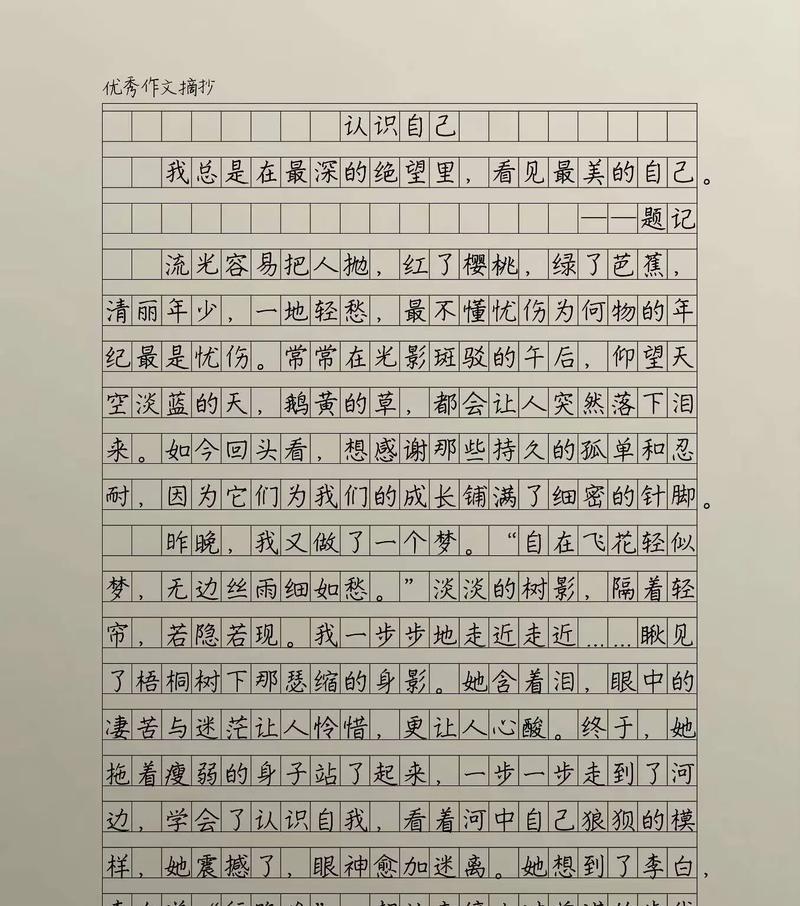 优秀作文摘抄
认识自己
我总是在最深的绝望里，看见最美的自己。
——题记
流光容易把人抛，红了樱桃，绿了芭蕉，
清丽年少，一地轻愁，最不懂忧伤为何物的年
纪最是忧伤。常常在光影斑驳的午后，仰望天
空淡蓝的天，鹅黄的草，都会让人突然落下泪
来。如今回头看，想感谢那些持久的孤单和忍
耐，因为它们为我们的成长铺满了细密的针脚。
昨晚，我又做了一个梦。“自在飞花轻似
梦，无边丝雨细如愁。”淡淡的树影，隔着轻
帘，若隐若现。我一步步地走近走近……瞅见
了梧桐树下那瑟缩的身影。她含着泪，眼中的
凄苦与迷茫让人怜惜，更让人心酸。终于，她
拖着瘦弱的身子站了起来，一步一步走到了河
边，学会了认识自我，看着河中自己狼狈的模
样，她震撼了，眼神愈加迷离。她想到了李白，